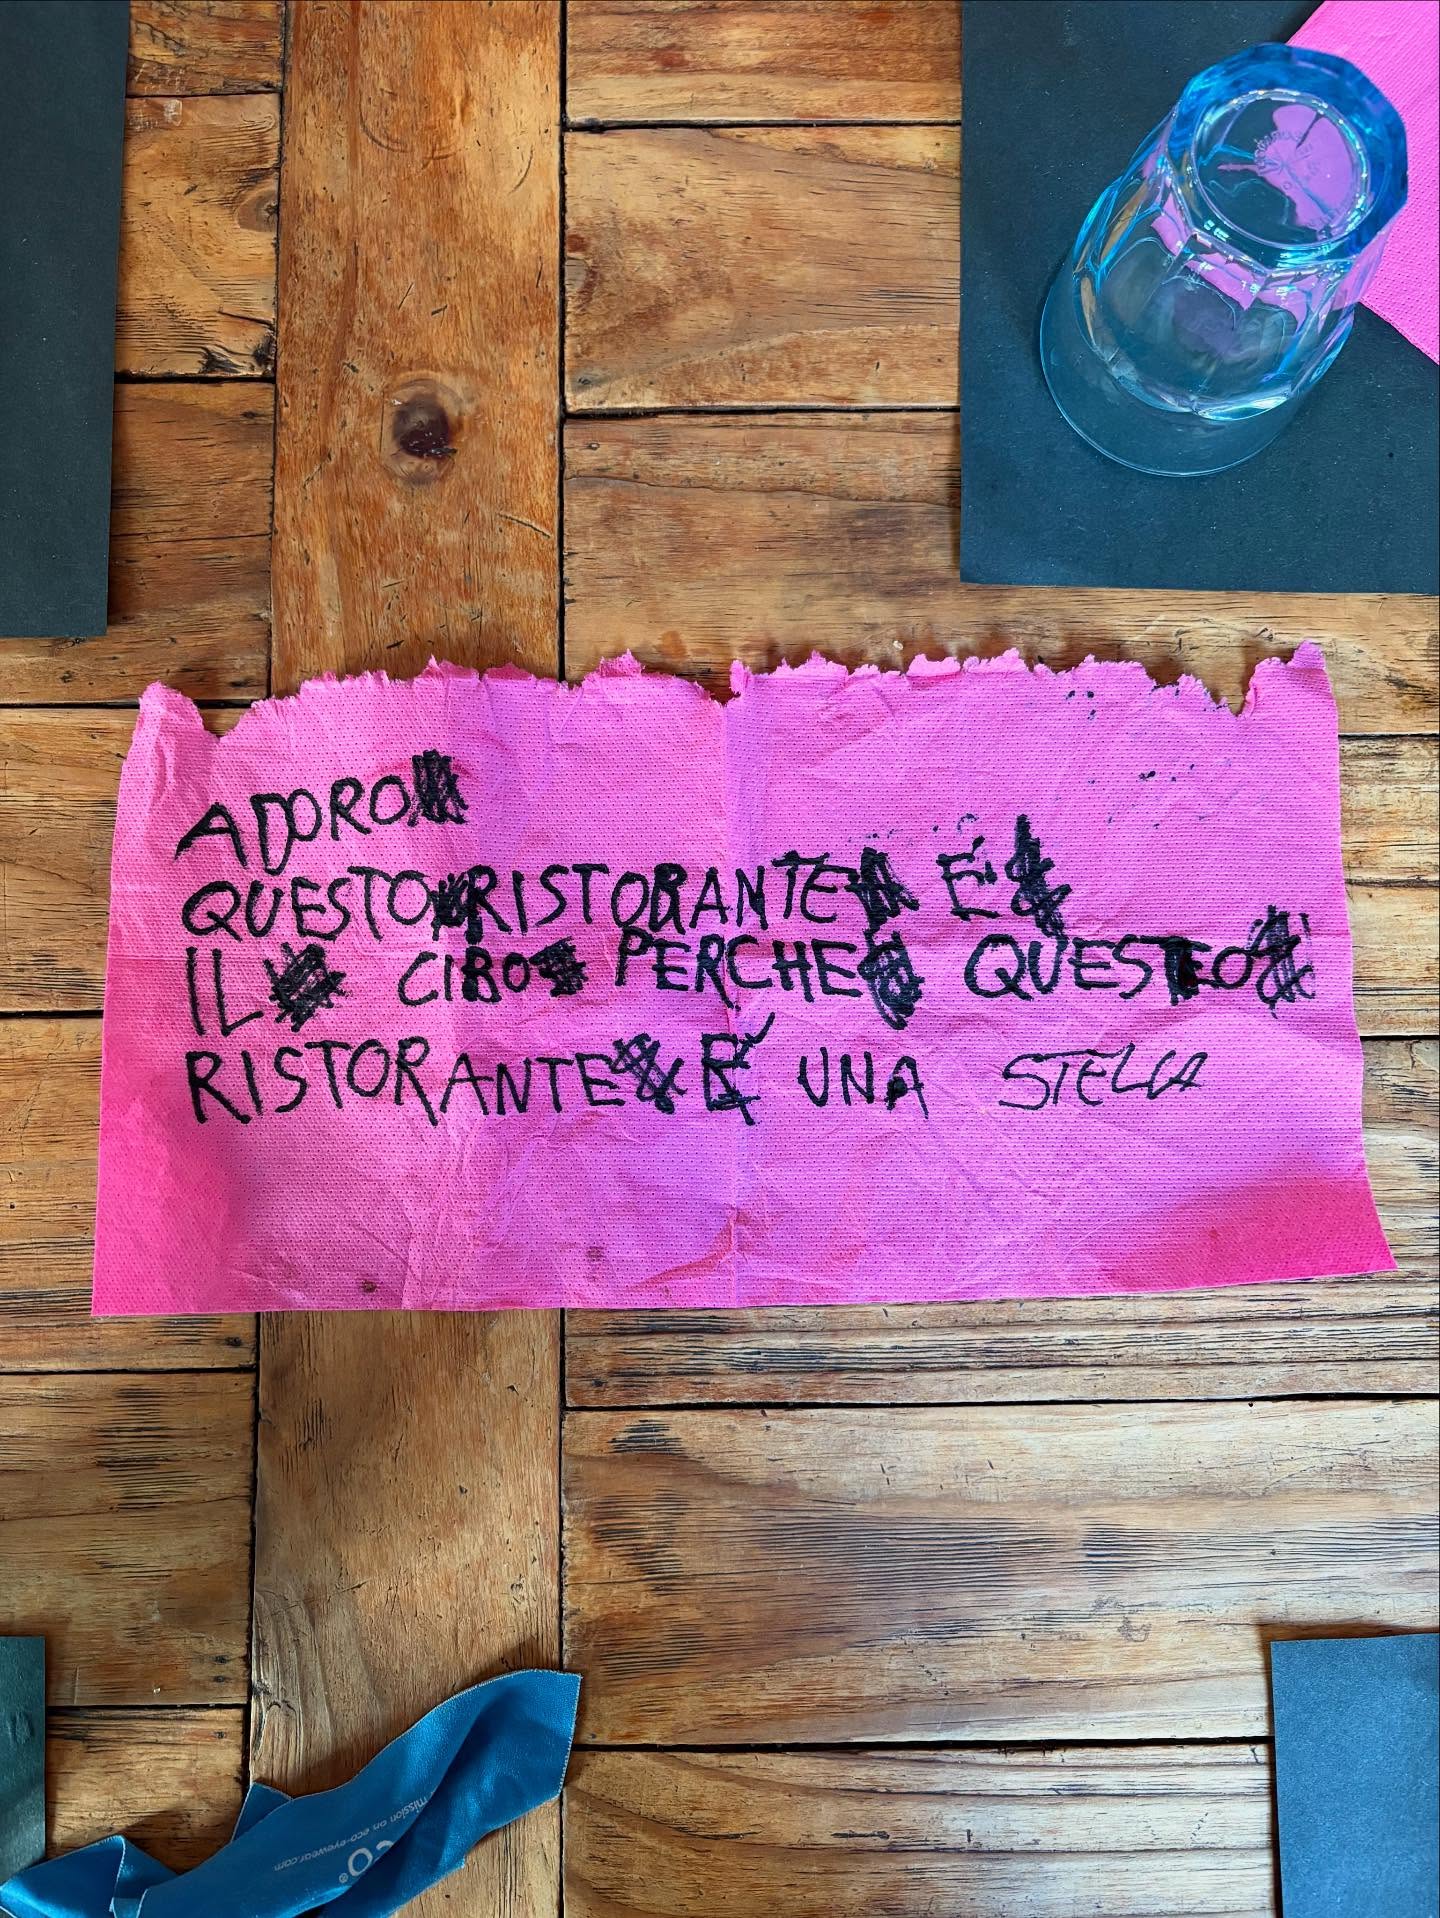 ADORO
QUESTO RISTORANTE E'
IL CIBO PERCHE QUESTO
RISTORANTE E' UNA STELLA
mission on eco-eyewear.com
eco®